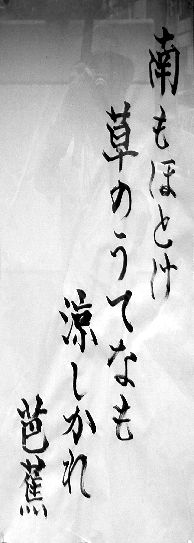 南もほとけ
草のうてなも
涼しかれ
芭蕉